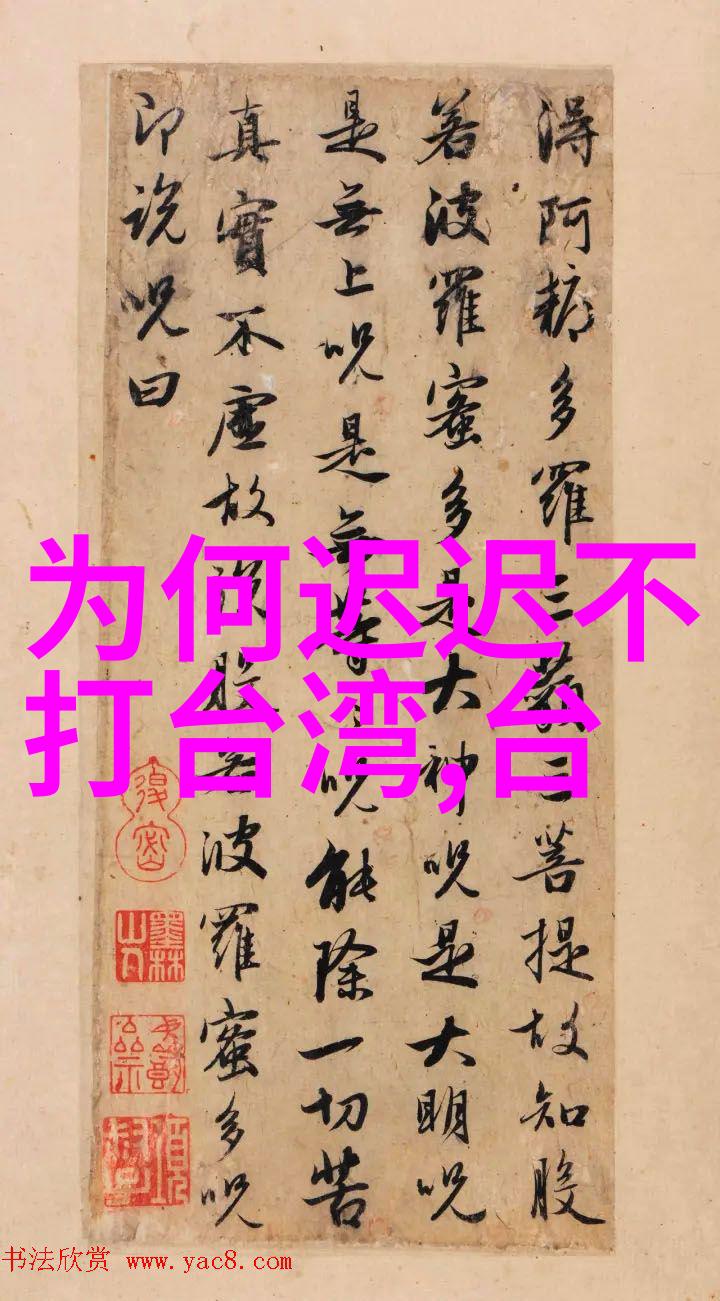 得阿耨多羅三藐三菩提故知般
若波羅蜜多是大神呪是大明呪
是無上呪是無等々呪能除一切苦
真實不虛故說般若波羅蜜多呪
即說呪曰
为何迟迟不
打台湾,台
墨林山人
书法欣赏 www.yac8.com